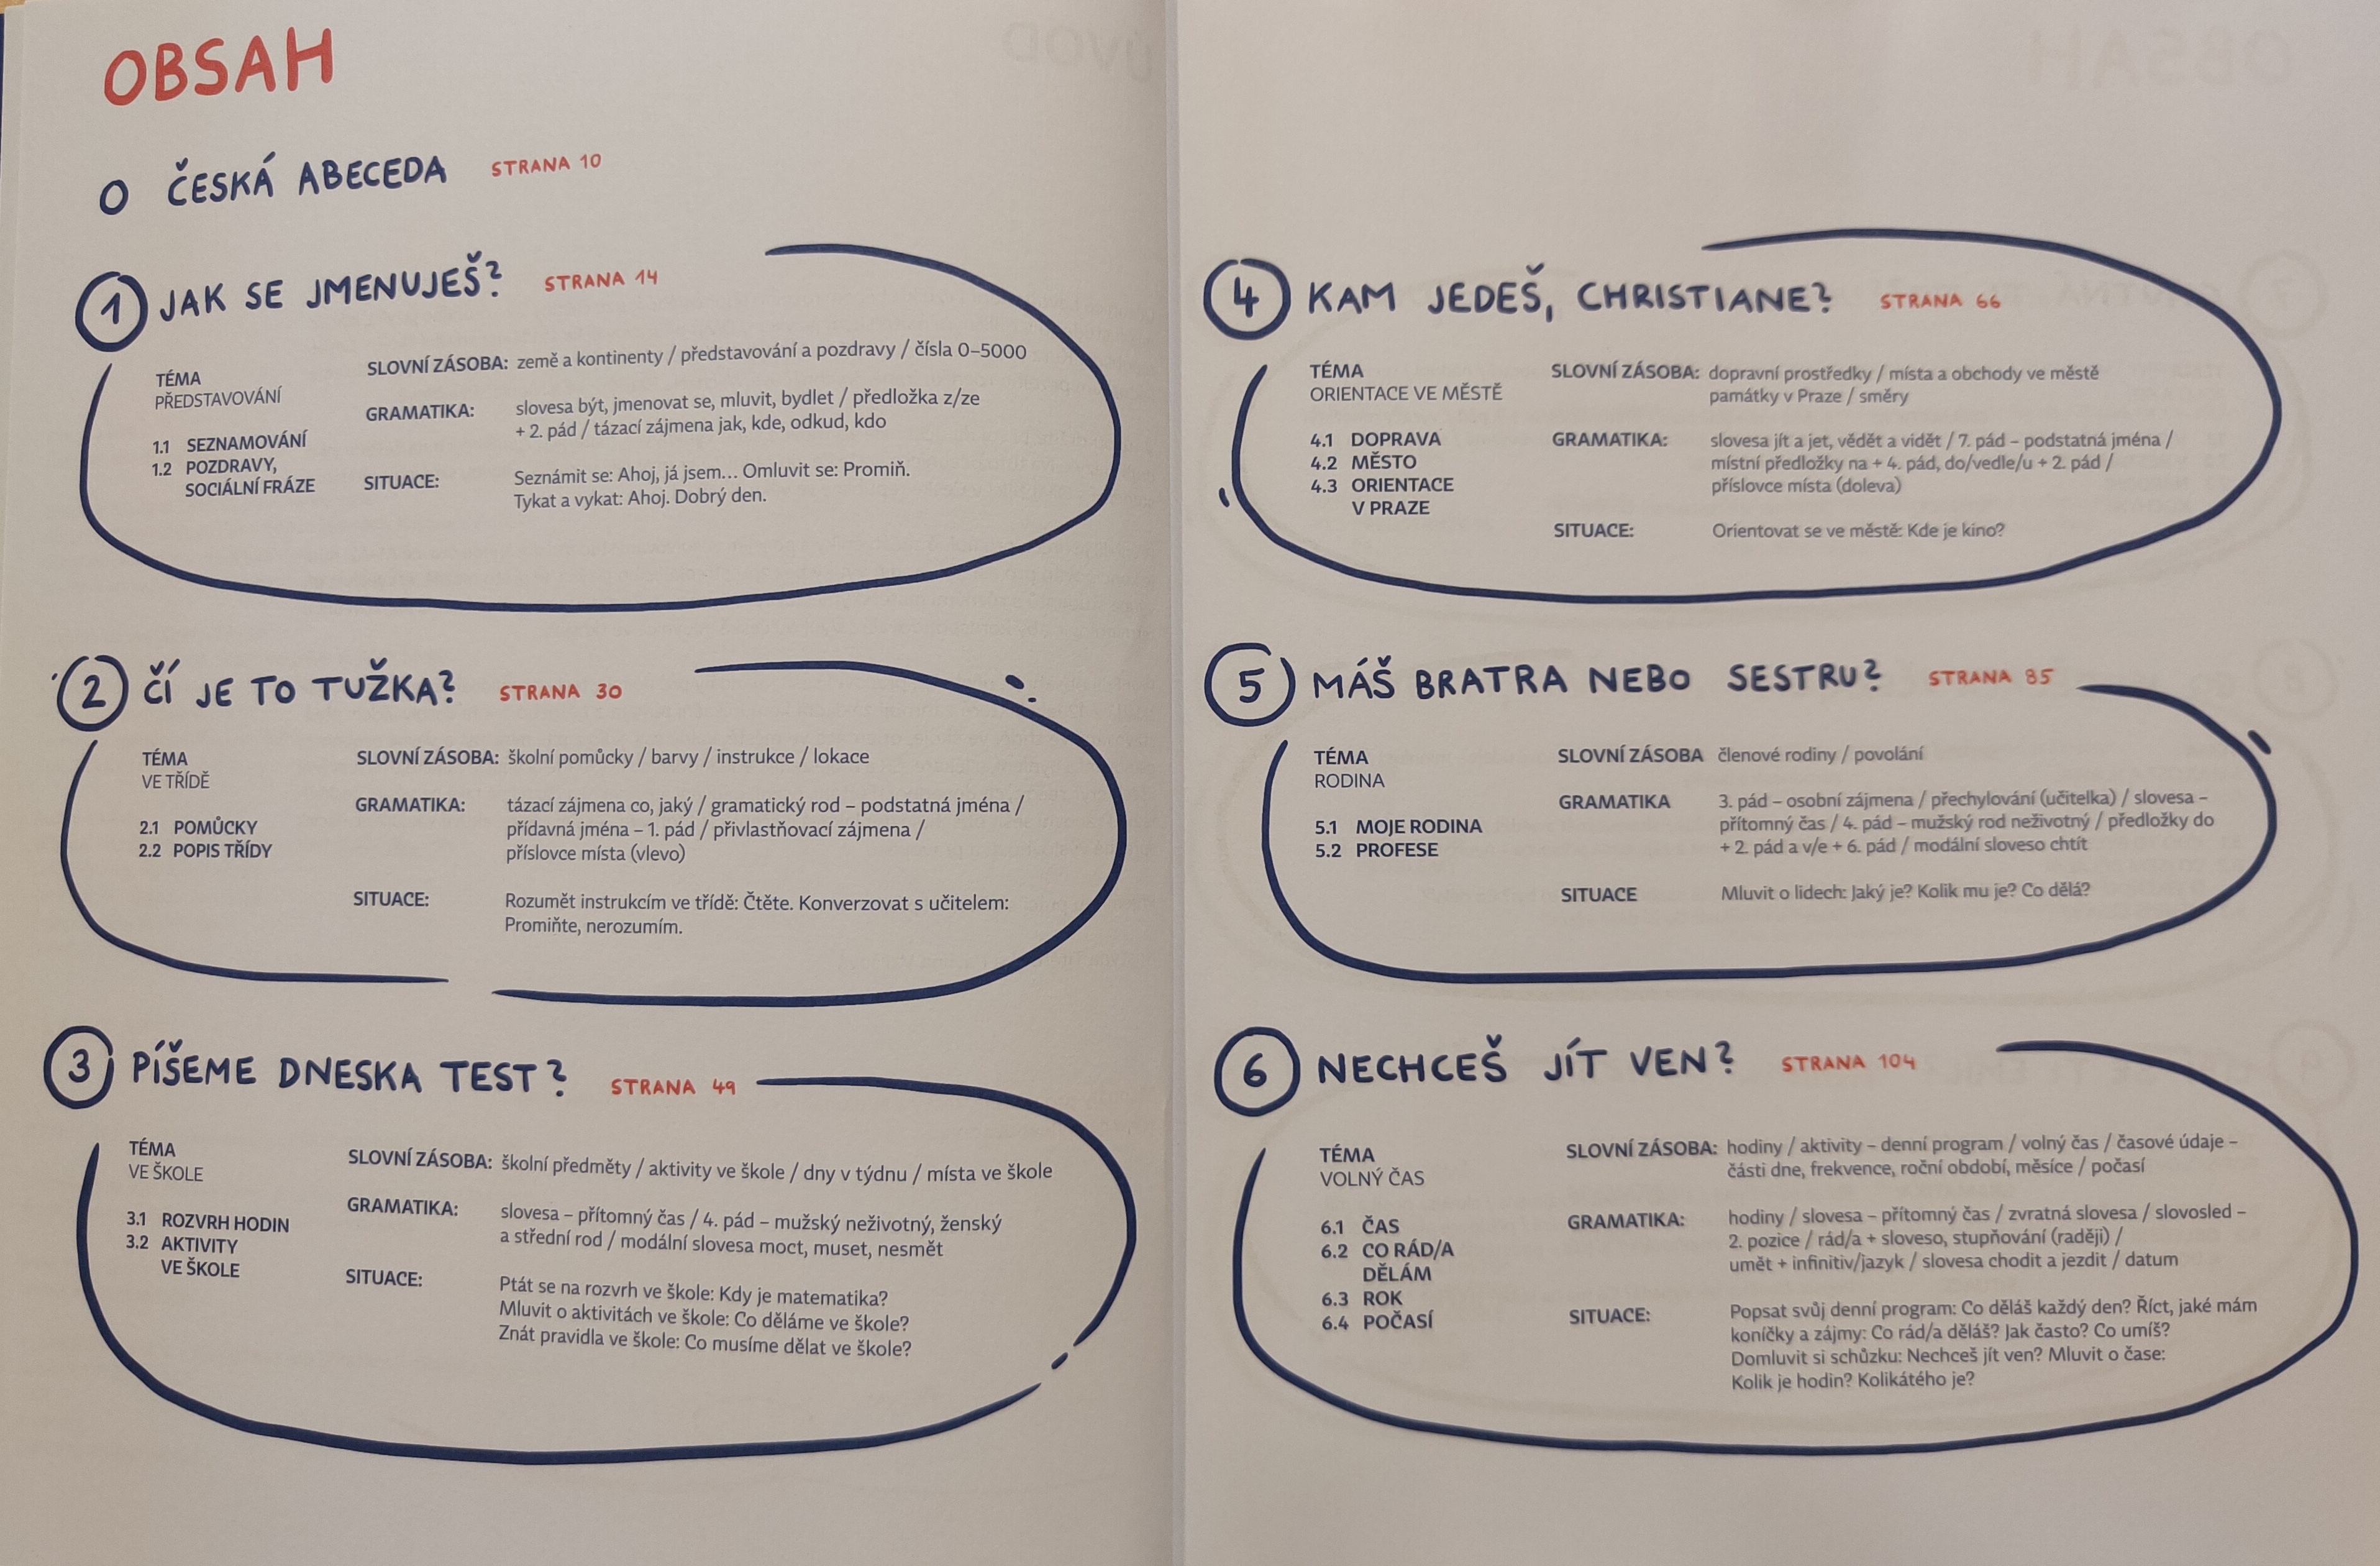 OBSAH
0 ČESKÁ ABECEDA STRANA 10
1 JAK SE JMENUJEŠ? STRANA 14
TÉMA
PŘEDSTAVOVÁNÍ
1.1 SEZNAMOVÁNÍ
1.2 POZDRAVY,
SOCIÁLNÍ FRÁZE
SLOVNÍ ZÁSOBA: země a kontinenty / představování a pozdravy / čísla 0–5000
GRAMATIKA: slovesa být, jmenovat se, mluvit, bydlet / předložka z/ze
+ 2. pád / tázací zájmena jak, kde, odkud, kdo
SITUACE: Seznámit se: Ahoj, já jsem... Omluvit se: Promiň.
Tykat a vykat: Ahoj. Dobrý den.
2 ČÍ JE TO TUŽKA? STRANA 30
TÉMA
VE TŘÍDĚ
2.1 POMŮCKY
2.2 POPIS TŘÍDY
SLOVNÍ ZÁSOBA: školní pomůcky / barvy / instrukce / lokace
GRAMATIKA: tázací zájmena co, jaký / gramatický rod – podstatná jména /
přídavná jména – 1. pád / přivlastňovací zájmena /
příslovce místa (vlevo)
SITUACE: Rozumět instrukcím ve třídě: Čtěte. Konverzovat s učitelem:
Promiňte, nerozumím.
3 PÍŠEME DNESKA TEST? STRANA 49
TÉMA
VE ŠKOLE
3.1 ROZVRH HODIN
3.2 AKTIVITY
VE ŠKOLE
SLOVNÍ ZÁSOBA: školní předměty / aktivity ve škole / dny v týdnu / místa ve škole
GRAMATIKA: slovesa – přítomný čas / 4. pád – mužský neživotný, ženský
a střední rod / modální slovesa moct, muset, nesmět
SITUACE: Ptát se na rozvrh ve škole: Kdy je matematika?
Mluvit o aktivitách ve škole: Co děláme ve škole?
Znát pravidla ve škole: Co musíme dělat ve škole?
4 KAM JEDEŠ, CHRISTIANE? STRANA 66
TÉMA
ORIENTACE VE MĚSTĚ
4.1 DOPRAVA
4.2 MĚSTO
4.3 ORIENTACE
V PRAZE
SLOVNÍ ZÁSOBA: dopravní prostředky / místa a obchody ve městě
památky v Praze / směry
GRAMATIKA: slovesa jít a jet, vědět a vidět / 7. pád – podstatná jména /
místní předložky na + 4. pád, do/vedle/u + 2. pád /
příslovce místa (doleva)
SITUACE: Orientovat se ve městě: Kde je kino?
5 MÁŠ BRATRA NEBO SESTRU? STRANA 85
TÉMA
RODINA
5.1 MOJE RODINA
5.2 PROFESE
SLOVNÍ ZÁSOBA členové rodiny / povolání
GRAMATIKA 3. pád – osobní zájmena / přechylování (učitelka) / slovesa –
přítomný čas / 4. pád – mužský rod neživotný / předložky do
+ 2. pád a v/e + 6. pád / modální sloveso chtít
SITUACE Mluvit o lidech: Jaký je? Kolik mu je? Co dělá?
6 NECHCEŠ JÍT VEN? STRANA 104
TÉMA
VOLNÝ ČAS
6.1 ČAS
6.2 CO RÁD/A
DĚLÁM
6.3 ROK
6.4 POČASÍ
SLOVNÍ ZÁSOBA: hodiny / aktivity – denní program / volný čas / časové údaje –
části dne, frekvence, roční období, měsíce / počasí
GRAMATIKA: hodiny / slovesa – přítomný čas / zvratná slovesa / slovosled –
2. pozice / rád/a + sloveso, stupňování (raději) /
umět + infinitiv/jazyk / slovesa chodit a jezdit / datum
SITUACE: Popsat svůj denní program: Co děláš každý den? Říct, jaké mám
koníčky a zájmy: Co rád/a děláš? Jak často? Co umíš?
Domluvit si schůzku: Nechceš jít ven? Mluvit o čase:
Kolik je hodin? Kolikátého je?